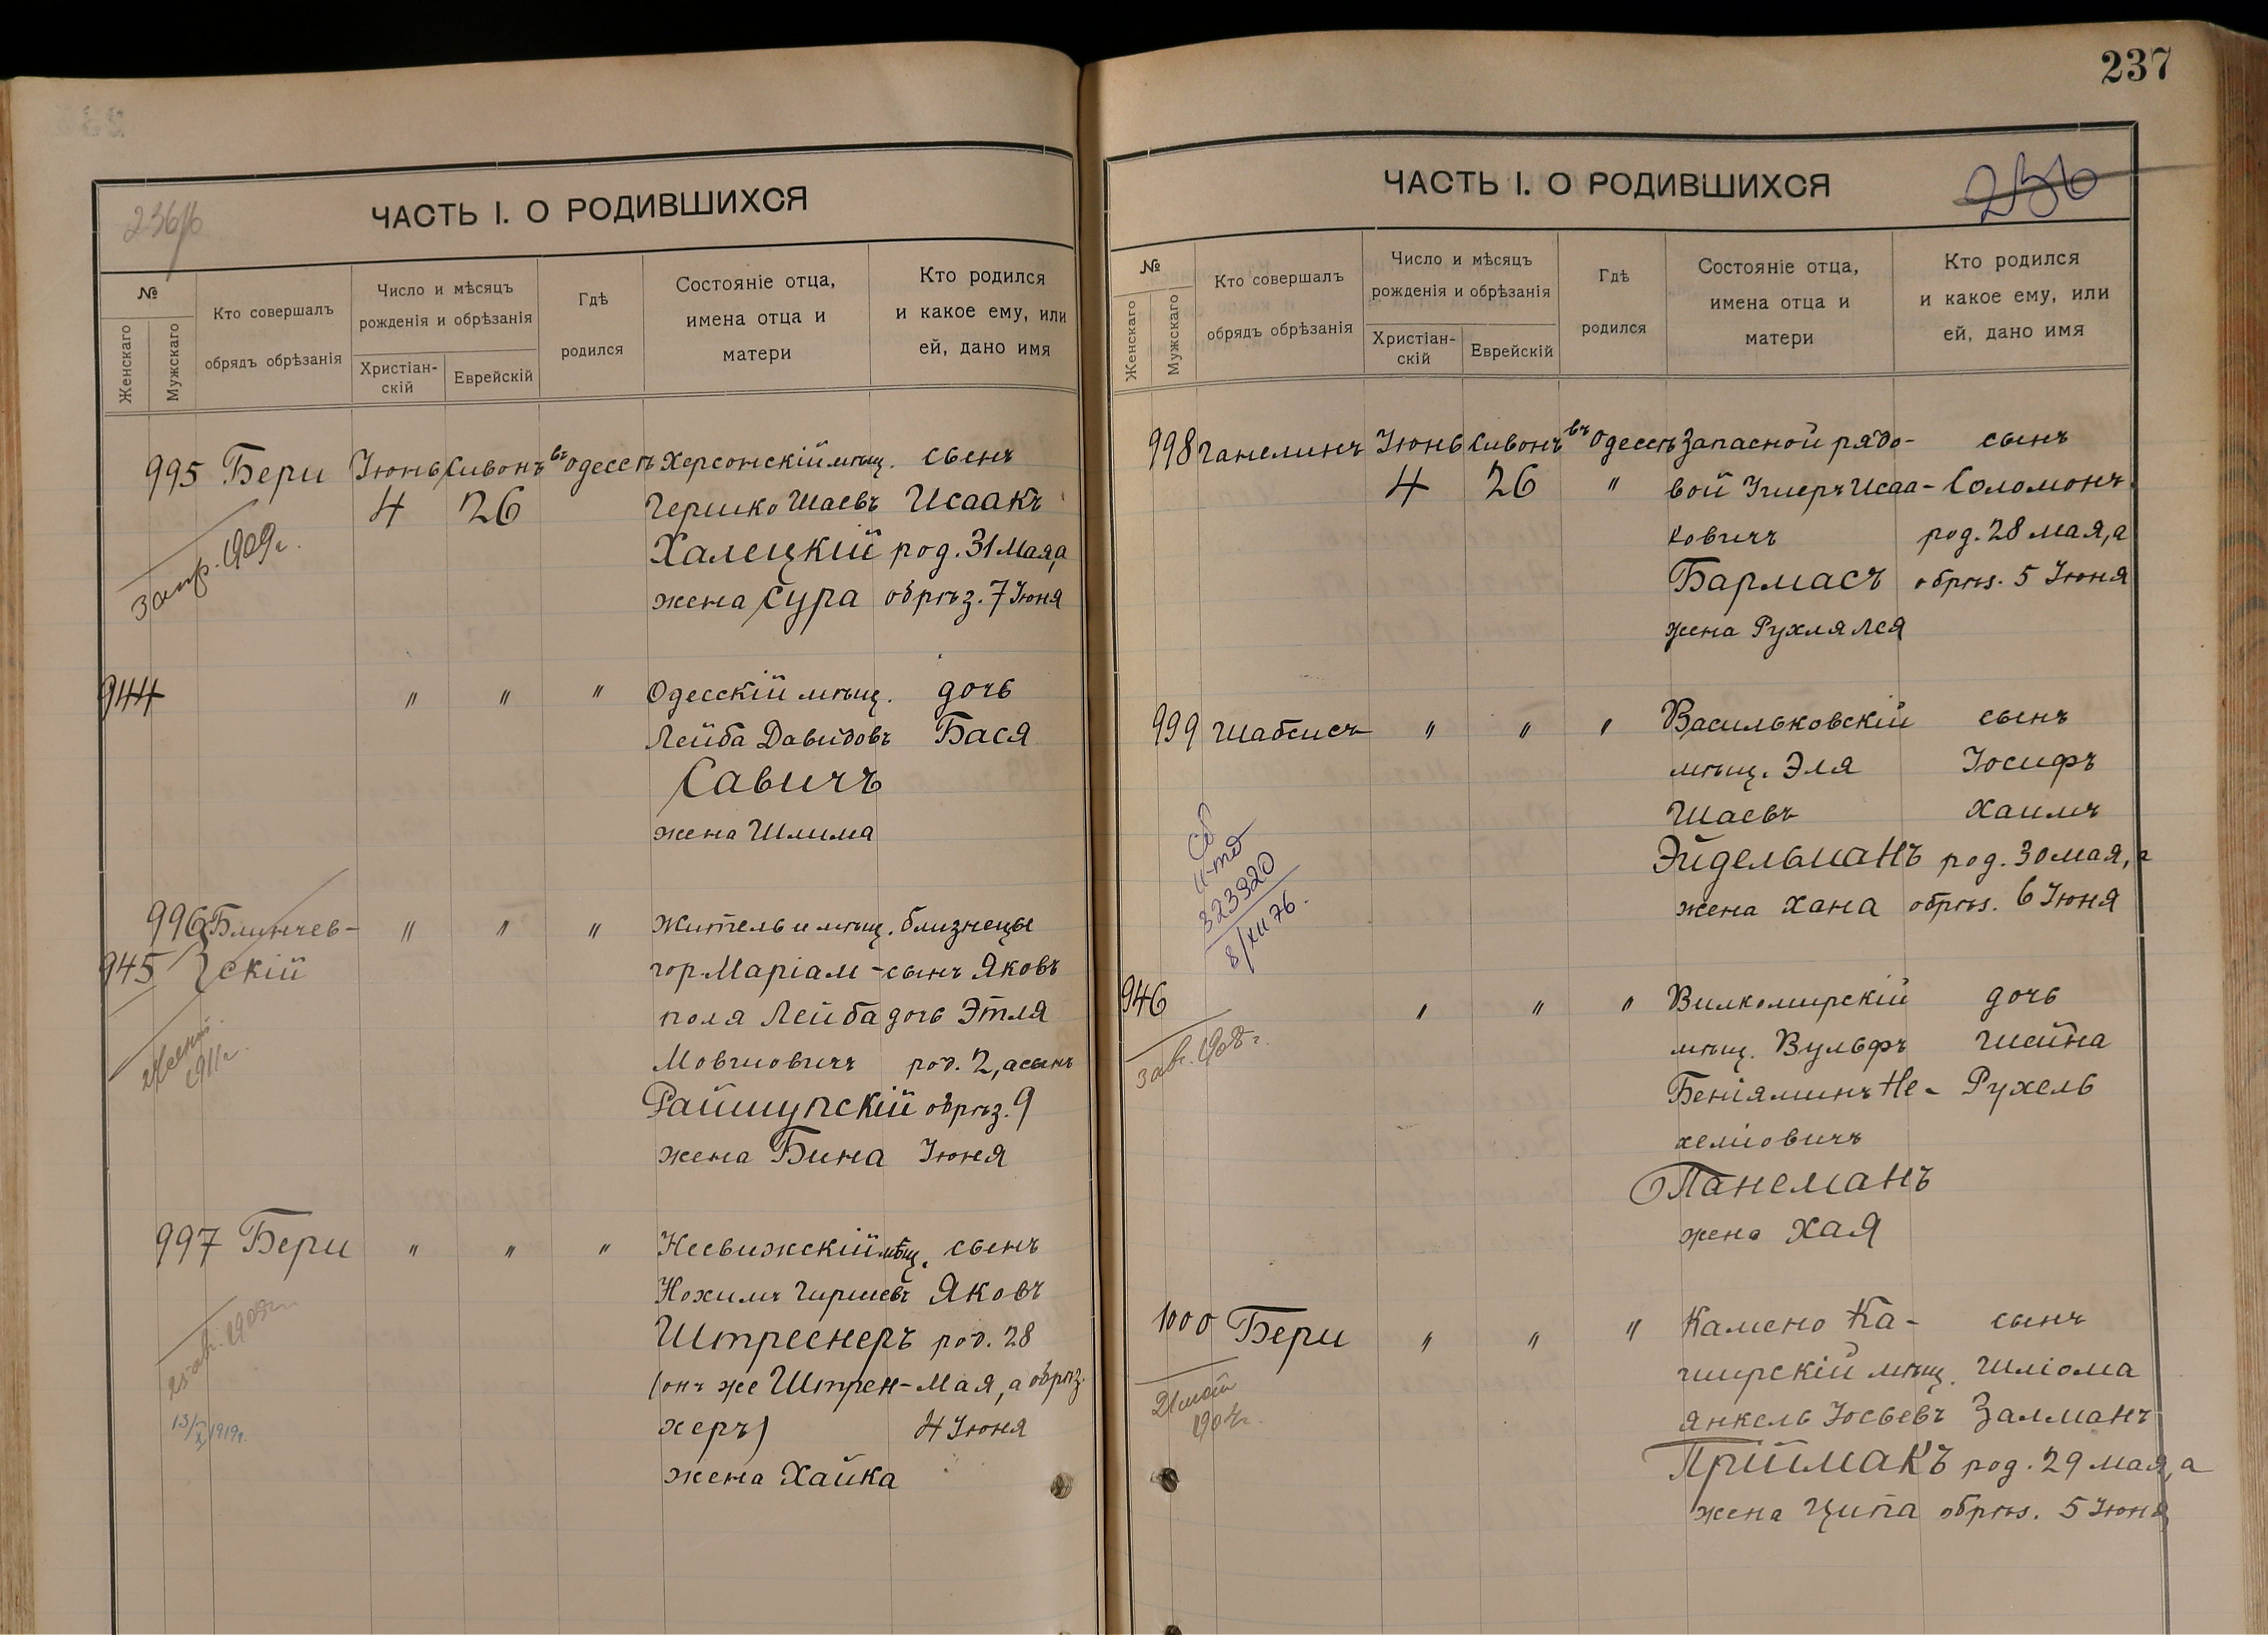 236/б
ЧАСТЬ I. О РОДИВШИХСЯ
№
Женскаго
Мужскаго
Кто совершалъ
обрядъ обрѣзанія
Число и мѣсяцъ
рожденія и обрѣзанія
Христіан-
скій
Еврейскій
Гдѣ
родился
Состояніе отца,
имена отца и
матери
Кто родился
и какое ему, или
ей, дано имя
995 Бери Іюнь Сивонъ въ Одессѣ Херсонскій мѣщ. сынъ
4 26 Гершко Шаевъ Исаакъ
Халецкій род. 31 Мая, а
жена Сура обрѣз. 7 Іюня
1909 г.
944 " " " Одесскій мѣщ. дочь
Лейба Давидовъ Бася
Савичъ
жена Шлима
996 Блинчев- " " " Житель и мѣщ. близнецы
945 скій гор. Маріам- сынъ Яковъ
поля Лейба дочь Этля
Мовшовичъ род. 2, а сынъ
Райшупскій обрѣз. 9
жена Бина Іюня
1911 г.
997 Бери " " " Несвижскій мѣщ. сынъ
Нохимъ Гиршевъ Яковъ
Штреенеръ род. 28
(онъ же Штрен- Мая, а обрѣз.
херъ) 4 Іюня
жена Хайка
1919 г.
237
ЧАСТЬ I. О РОДИВШИХСЯ
236
№
Женскаго
Мужскаго
Кто совершалъ
обрядъ обрѣзанія
Число и мѣсяцъ
рожденія и обрѣзанія
Христіан-
скій
Еврейскій
Гдѣ
родился
Состояніе отца,
имена отца и
матери
Кто родился
и какое ему, или
ей, дано имя
998 Ганелинъ Іюнь Сивонъ въ Одессѣ Запасной рядо- сынъ
4 26 " вой Ушеръ Исаа- Соломонъ
ковичъ род. 28 мая, а
Бармасъ обрѣз. 5 Іюня
жена Рухля Лея
999 Шабсисъ " " " Васильковскій сынъ
мѣщ. Эля Іосифъ
Шаевъ Хаимъ
Эйдельманъ род. 30 мая, а
жена Хана обрѣз. 6 Іюня
323920
8/XII 76.
946 " " " Вилкомирскій дочь
мѣщ. Вульфъ Шейна
Беніяминъ Не- Рухель
хеміовичъ
Панеманъ
жена Хая
1908 г.
1000 Бери " " " Камено Ка- сынъ
ширскій мѣщ. Шліома
Янкель Іосьевъ Залманъ
Пріймакъ род. 29 мая, а
жена Ципа обрѣз. 5 Іюня